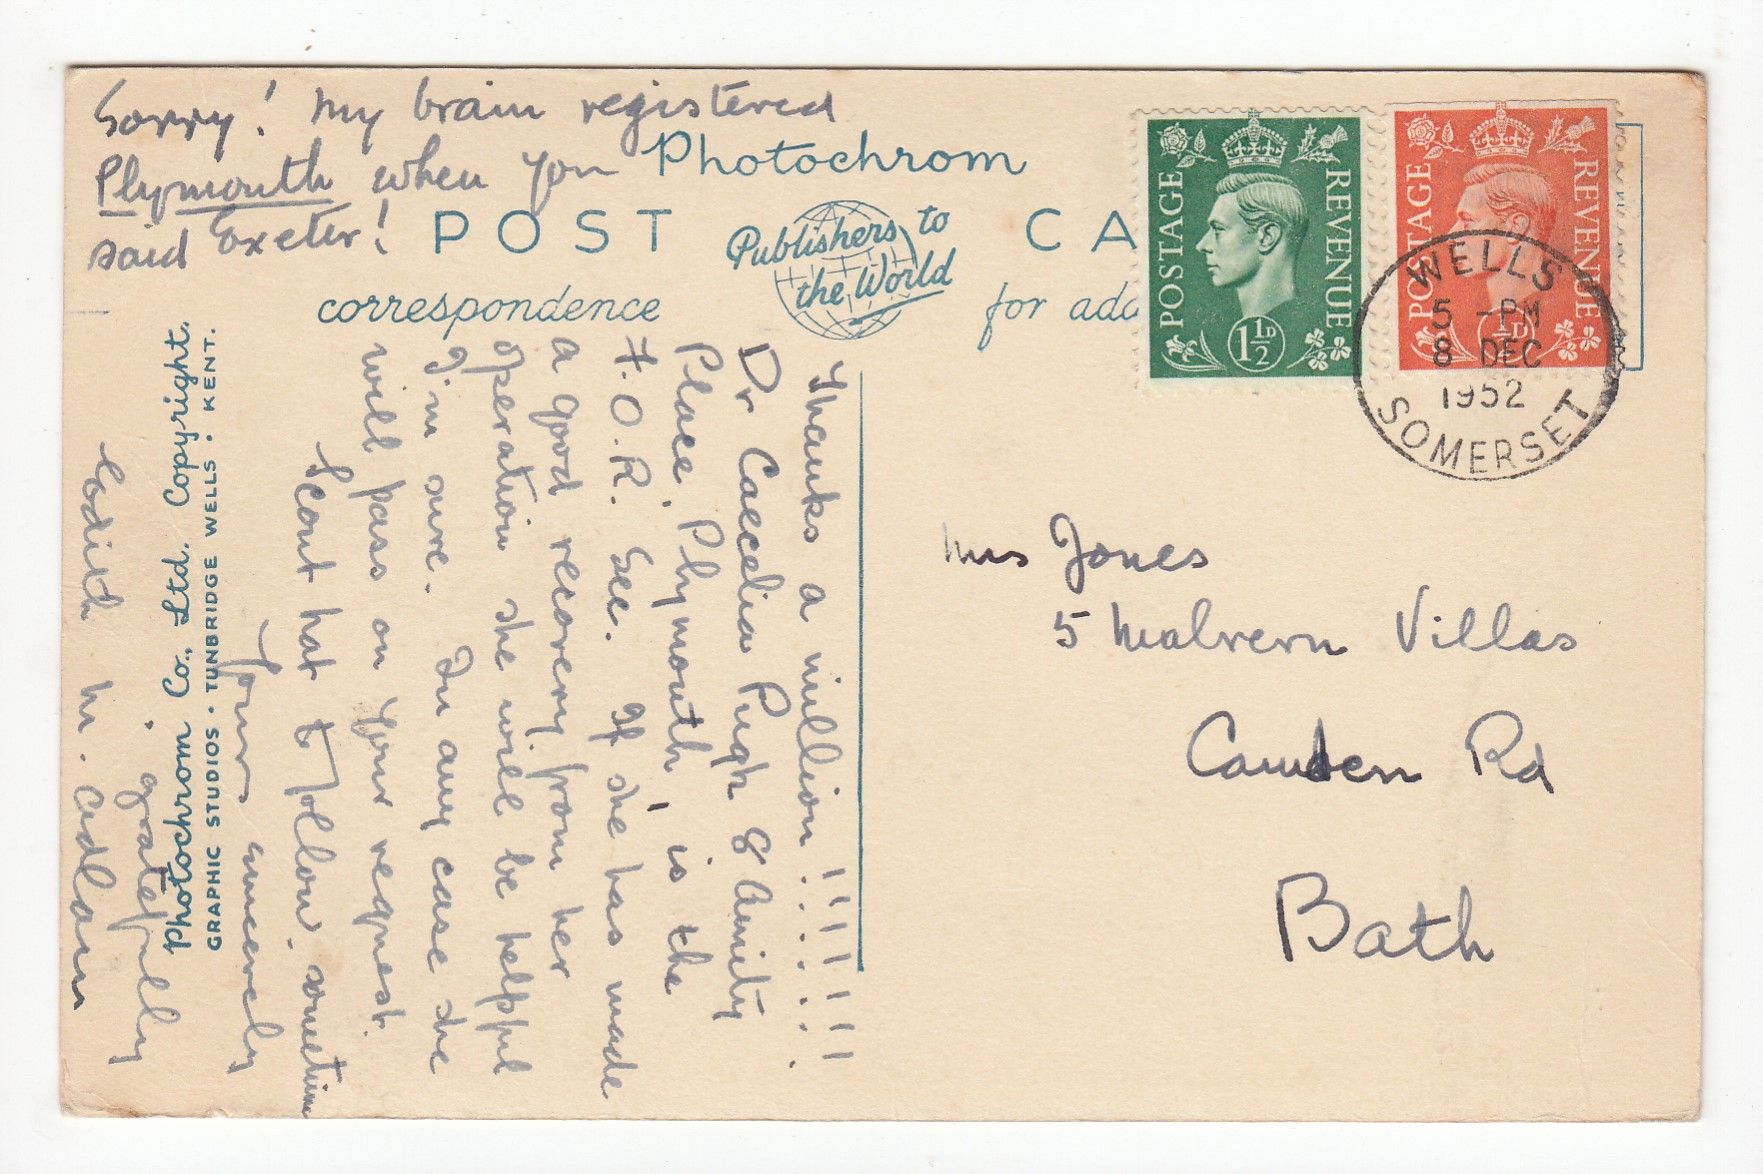 Sorry! My brain registered
Plymouth when you
said Exeter!
Photochrom
POST CA
Publishers to
the World
correspondence
for add
POSTAGE REVENUE
1½D
POSTAGE REVENUE
½D
WELLS
5 - PM
8 DEC
1952
SOMERSET
Thanks a million!!!!!!
Dr Caecelia Pugh 8 Amity
Place, Plymouth, is the
F.O.R. Sec. If she has made
a good recovery from her
operation she will be helpful
I'm sure. In any case she
will pass on your request.
Scout hat to follow. sometime
Yours sincerely
gratefully
Edith M. Adlam
Photochrom Co., Ltd. Copyright.
GRAPHIC STUDIOS • TUNBRIDGE WELLS • KENT.
Mrs Jones
5 Malvern Villas
Camden Rd
Bath